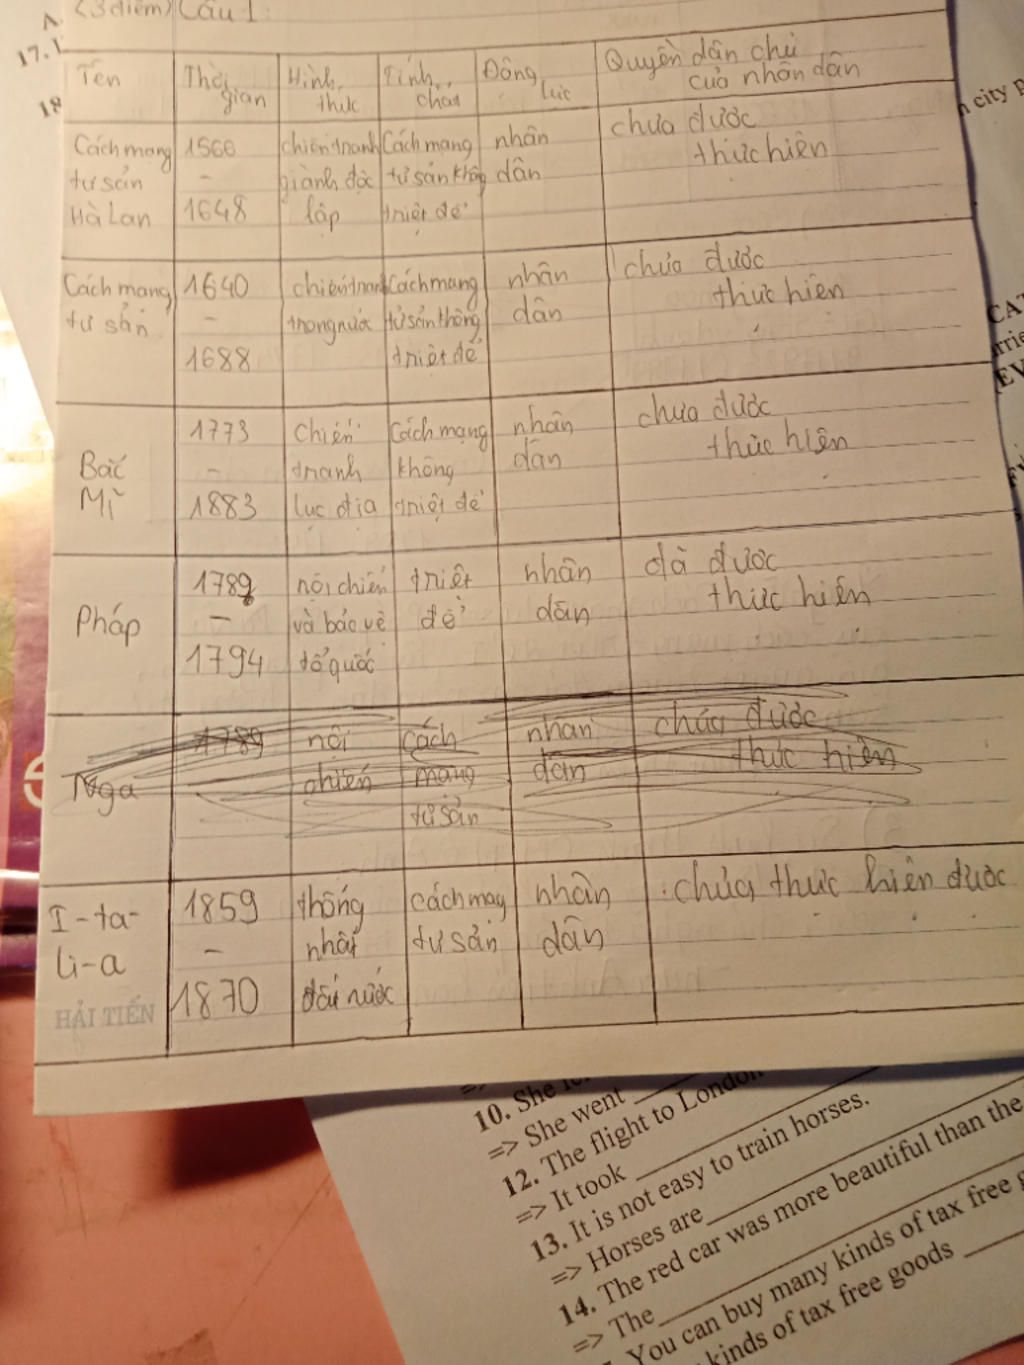 (3 điểm) Câu 1:
17.1
18
Tên
Thời gian
Hình thức
Tính chất
Động lực
Quyền dân chủ
của nhân dân
Cách mạng
tư sản
Hà Lan
1566
-
1648
chiến tranh
giành độc
lập
Cách mạng
tư sản không
triệt để
nhân
dân
chưa được
thực hiện
Cách mạng
tư sản
1640
-
1688
chiến tranh
trong nước
Cách mạng
tư sản không
triệt để
nhân
dân
chưa được
thực hiện
Bắc
Mĩ
1773
-
1883
chiến
tranh
lục địa
Cách mạng
không
triệt để
nhân
dân
chưa được
thực hiện
Pháp
1789
-
1794
nội chiến
và bảo vệ
tổ quốc
triệt
để
nhân
dân
đã được
thực hiện
Nga
1789
nội
chiến
cách
mạng
tư sản
nhân
dân
chưa được
thực hiện
I-ta-
li-a
1859
-
1870
thống
nhất
đất nước
cách mạg
tư sản
nhân
dân
chưa thực hiện được
HẢI TIẾN
n city
CAT
EV
10. She
=> She went
12. The flight to London
=> It took
13. It is not easy to train horses.
=> Horses are
14. The red car was more beautiful than the
=> The
You can buy many kinds of tax free
kinds of tax free goods